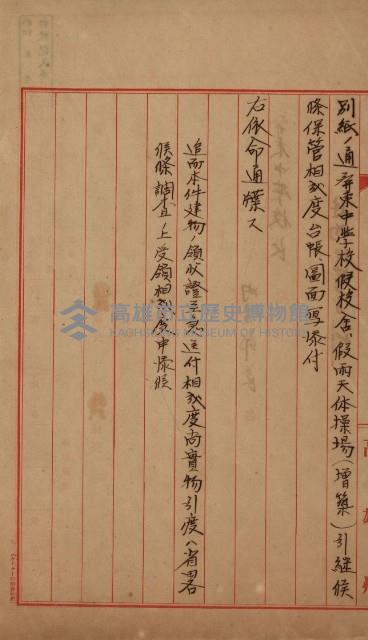 別紙ノ通屏東中学校假校舍、假雨天体操場(增築)引継候
條保管相成度台帳、圖面写添付
右依命通牒ス
追而本件建物ノ領收證至急送付相成度尚實物引度ハ省畧
候條調查ノ上受領相成度申添候
高雄市立歷史博物館
KAOHSIUNG MUSEUM OF HISTORY
高雄州